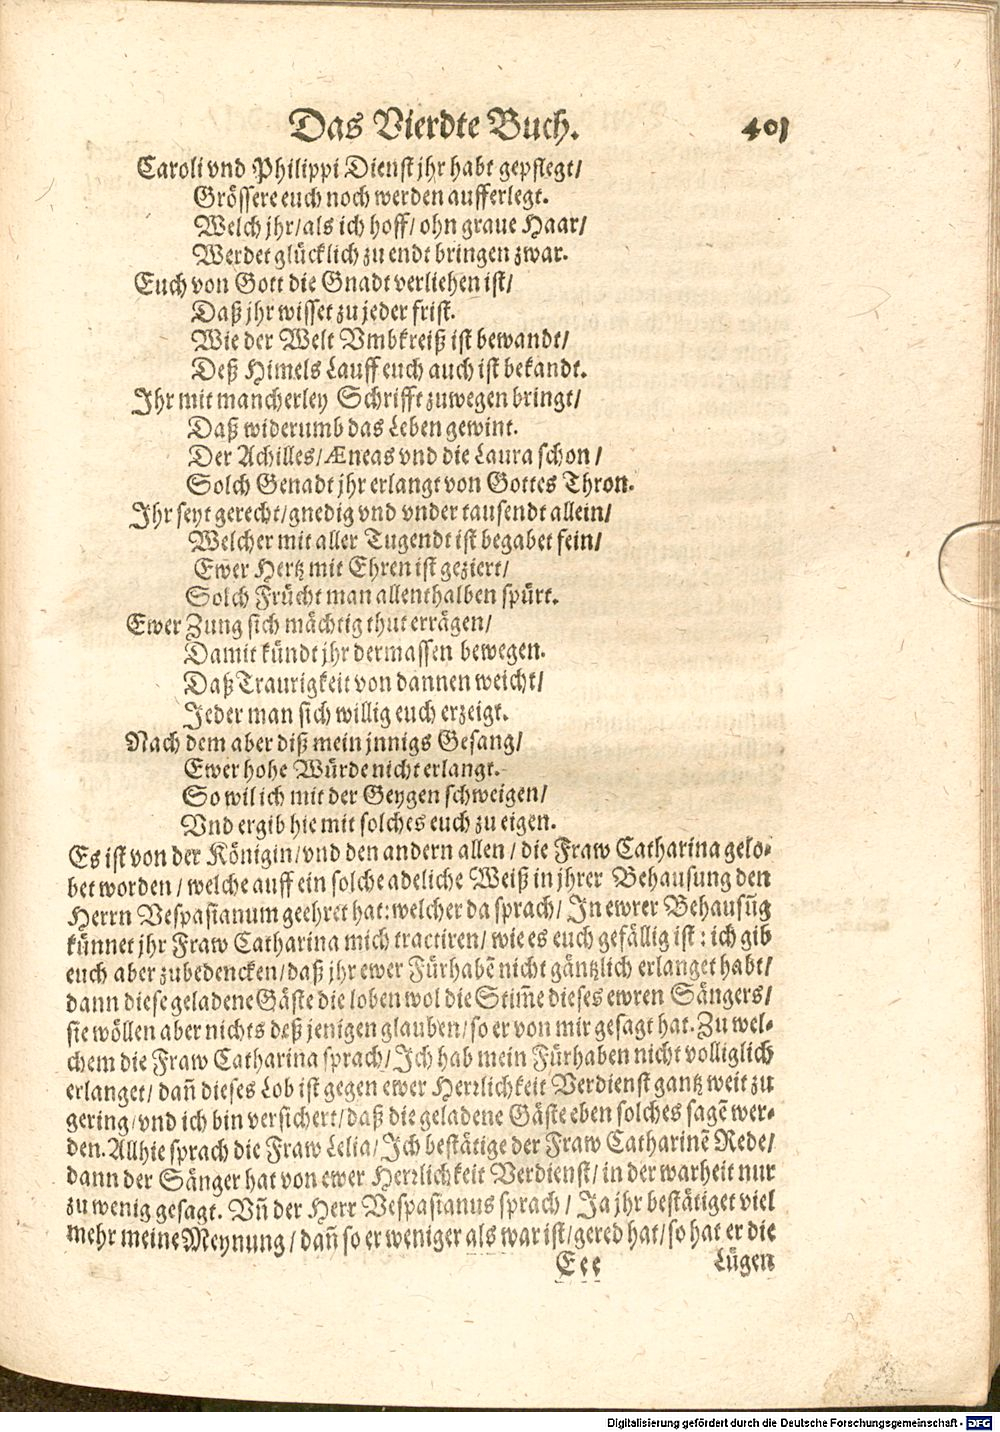 Das Vierdte Buch. 401
Caroli vnd Philippi Dienst jhr habt gepflegt/
Grössere euch noch werden aufferlegt.
Welch jhr/als ich hoff/ ohn graue Haar/
Werdet glücklich zu endt bringen zwar.
Euch von Gott die Gnadt verliehen ist/
Daß jhr wisset zu jeder frist.
Wie der Welt Vmbkreiß ist bewandt/
Deß Himels Lauff euch auch ist bekandt.
Ihr mit mancherley Schrifft zuwegen bringt/
Daß widerumb das Leben gewint.
Der Achilles/ Æneas vnd die Laura schon/
Solch Genadt jhr erlangt von Gottes Thron.
Ihr seyt gerecht/gnedig vnd vnder tausendt allein/
Welcher mit aller Tugendt ist begabet fein/
Ewer Hertz mit Ehren ist geziert/
Solch Frücht man allenthalben spürt.
Ewer Zung sich mächtig thut errägen/
Damit kündt jhr dermassen bewegen.
Daß Traurigkeit von dannen weicht/
Jeder man sich willig euch erzeigt.
Nach dem aber diß mein jnnigs Gesang/
Ewer hohe Würde nicht erlangt.
So wil ich mit der Geygen schweigen/
Vnd ergib hie mit solches euch zu eigen.
Es ist von der Königin/vnd den andern allen/ die Fraw Catharina gelo-
bet worden/ welche auff ein solche adeliche Weiß in jhrer Behausung den
Herrn Vespasianum geehret hat: welcher da sprach/ In ewrer Behausūg
künnet jhr Fraw Catharina mich tractiren/ wie es euch gefällig ist: ich gib
euch aber zubedencken/daß jhr ewer Fürhabē nicht gäntzlich erlanget habt/
dann diese geladene Gäste die loben wol die Stim̄e dieses ewren Sängers/
sie wöllen aber nichts deß jenigen glauben/so er von mir gesagt hat. Zu wel-
chem die Fraw Catharina sprach/ Ich hab mein Fürhaben nicht volliglich
erlanget/ dan̄ dieses Lob ist gegen ewer Herrlichkeit Verdienst gantz weit zu
gering/vnd ich bin versichert/daß die geladene Gäste eben solches sagē wer-
den. Allhie sprach die Fraw Lelia/ Ich bestätige der Fraw Catharinē Rede/
dann der Sänger hat von ewer Herrlichkeit Verdienst/ in der warheit nur
zu wenig gesagt. Vn̄ der Herr Vespasianus sprach/ Ja jhr bestätiget viel
mehr meine Meynung/ dan̄ so er weniger als war ist/gered hat/so hat er die
Eee Lügen
Digitalisierung gefördert durch die Deutsche Forschungsgemeinschaft - DFG